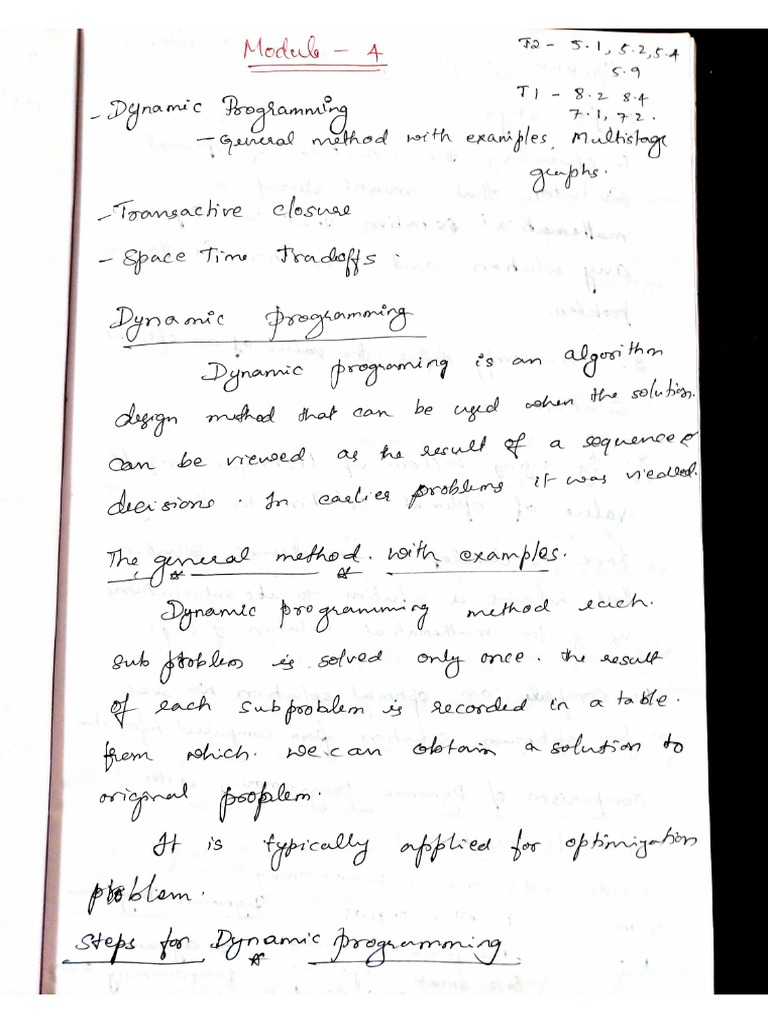 Module - 4
T2 - 5.1, 5.2, 5.4
5.9
T1 - 8.2 8.4
7.1, 7.2.
- Dynamic Programming
- General method with examples, Multistage
graphs.
- Transactive closure
- Space Time Tradoffs :
Dynamic programming
Dynamic programing is an algorithm
design method that can be used when the solution.
can be viewed as the result of a sequence
decisions. In earlier problems it was
The general method. with examples.
Dynamic programming method each.
sub problem is solved only once. the result
of each subproblem is recorded in a table.
from which. we can obtain a solution to
original problem.
It is typically applied for optimization
problem.
Steps for Dynamic programming